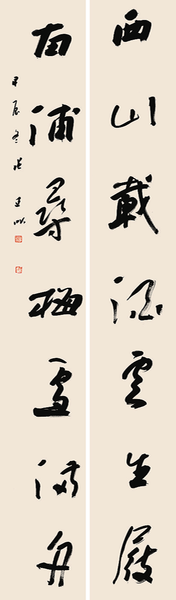 西山載酒雲生屐
南浦尋梅雪滿舟
甲辰冬